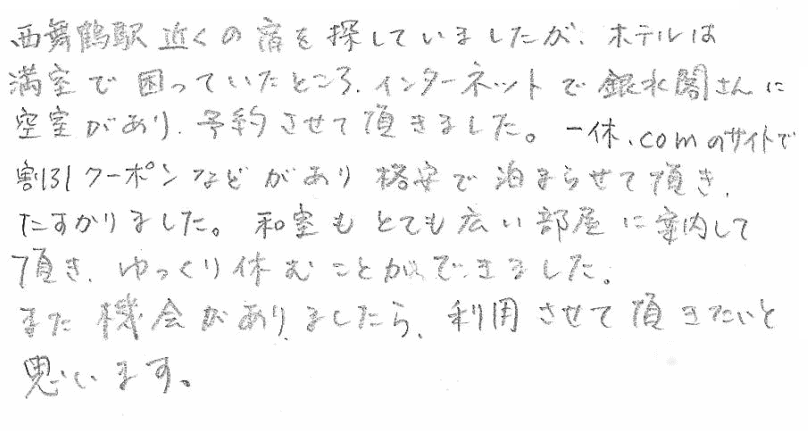 西舞鶴駅近くの宿を探していましたが、ホテルは
満室で困っていたところ、インターネットで銀水閣さんに
空室があり、予約させて頂きました。一休.comのサイトで
割引クーポンなどがあり格安で泊まらせて頂き、
たすかりました。和室もとても広い部屋に案内して
頂き、ゆっくり休むことができました。
また機会がありましたら、利用させて頂きたいと
思います。